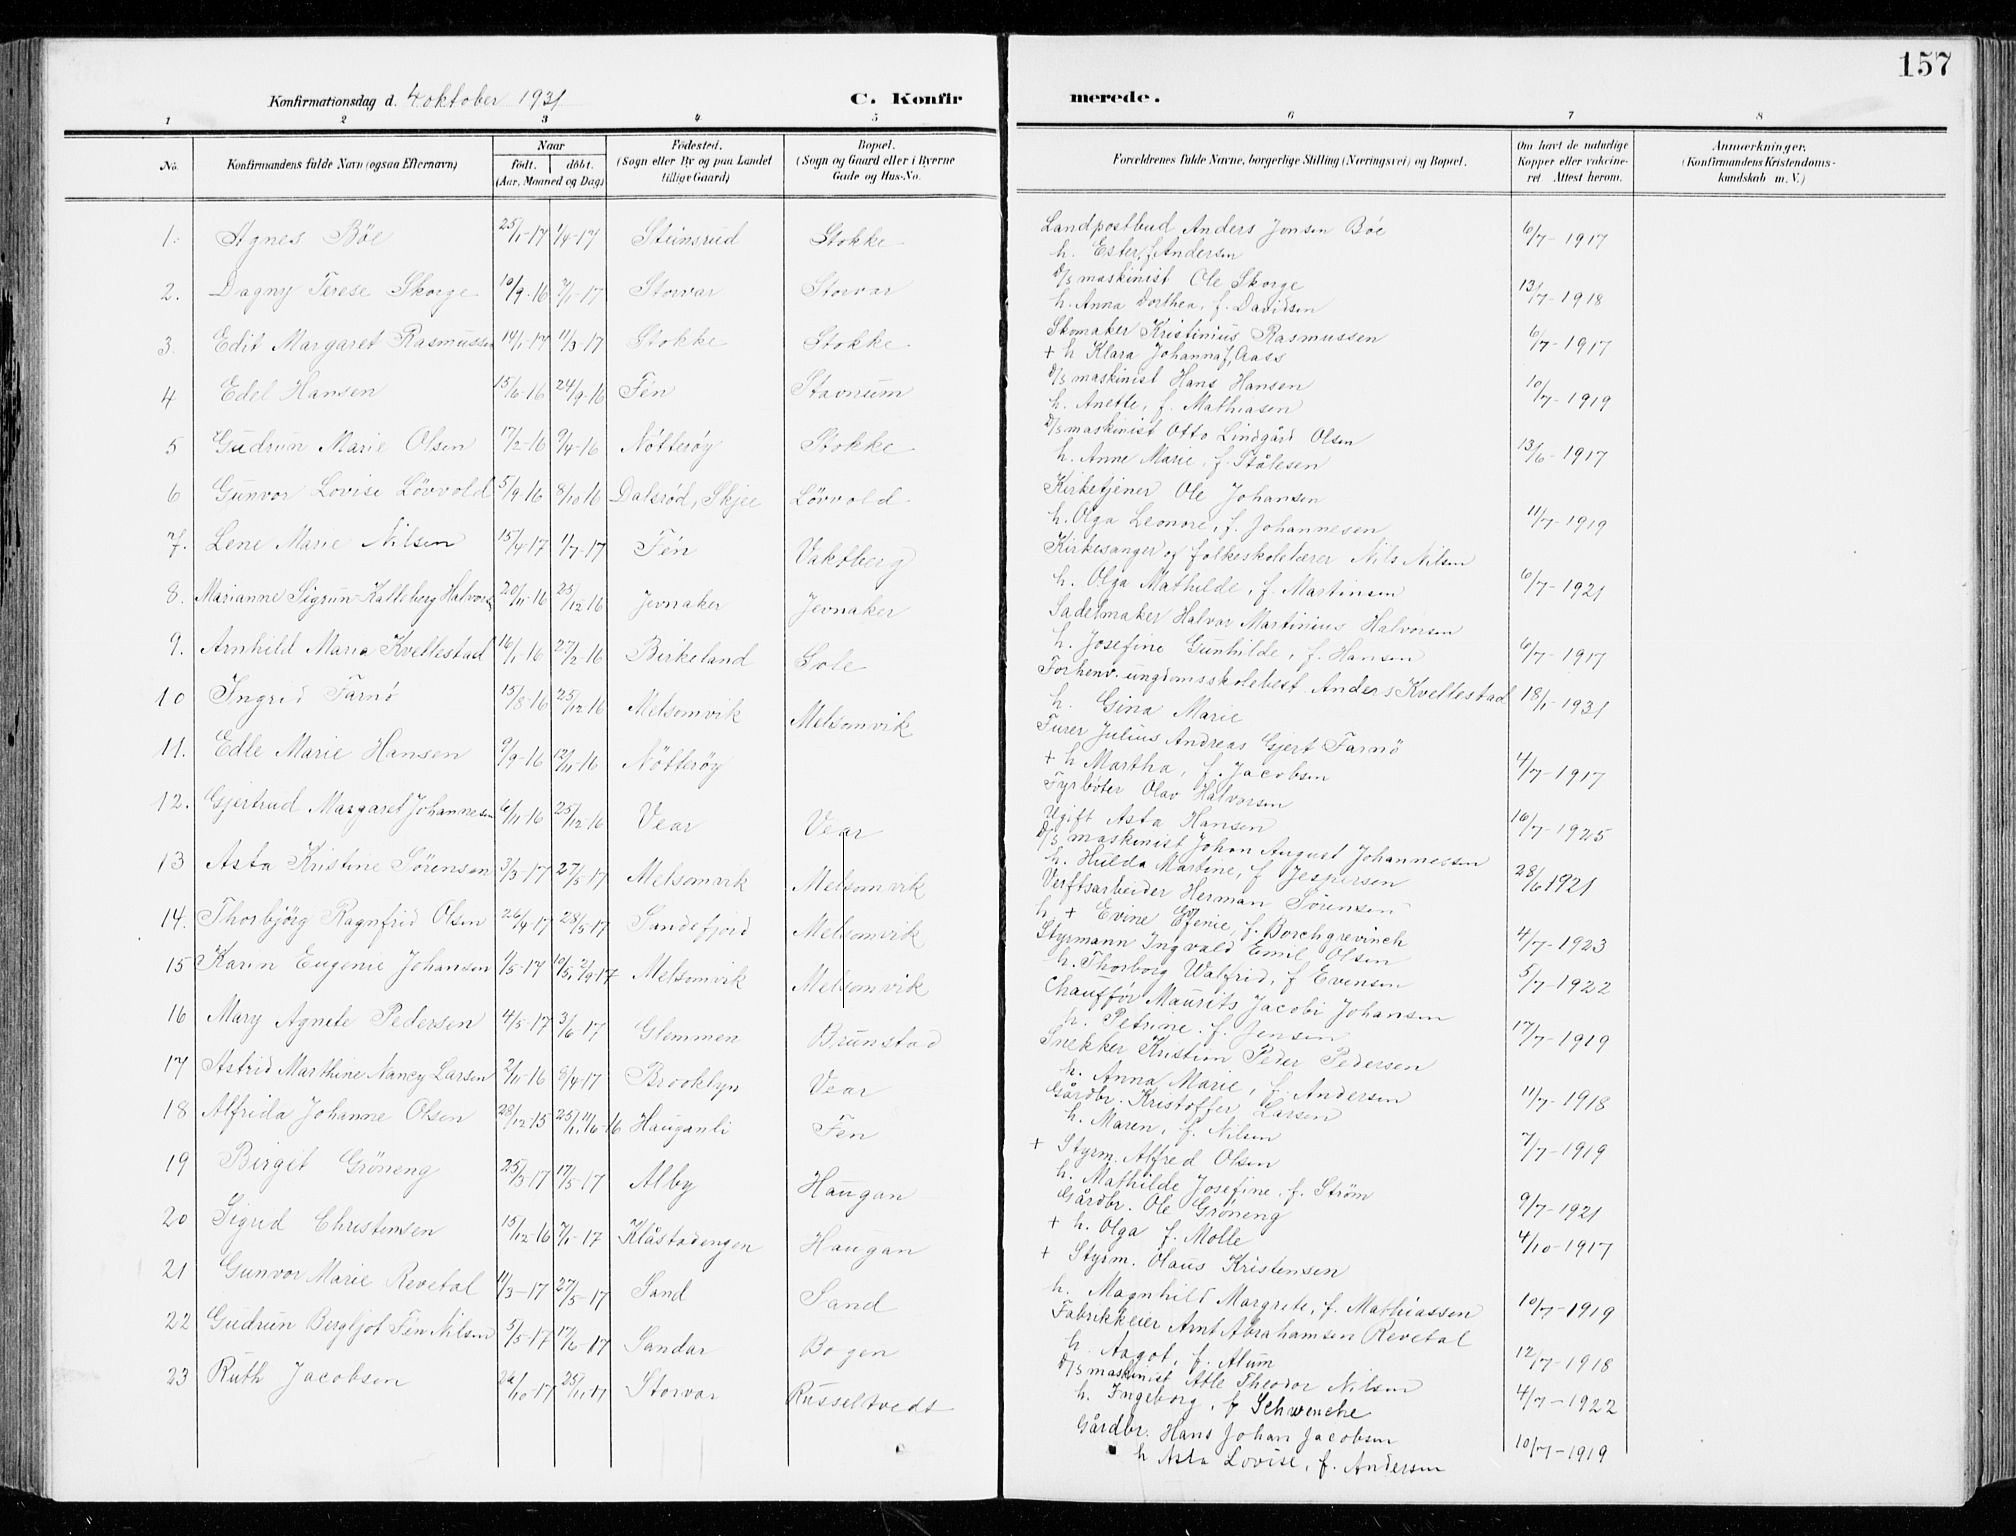 157
Konfirmationsdag d. 4 oktober 1931 C. Konfirmerede.
1 2 3 4 5 6 7 8
No. Konfirmandens fulde Navn (ogsaa Efternavn) Naar født. døbt. (Aar, Maaned og Dag) Fødested. (Sogn eller By og paa Landet tillige Gaard) Bopæl. (Sogn og Gaard eller i Byerne Gade og Hus-No. Forældrenes fulde Navne, borgerlige Stilling (Næringsvei) og Bopæl. Om havt de naturlige Kopper eller vakcineret Attest herom. Anmærkninger, (Konfirmandens Kristendomskundskab m. V.)
1. Agnes Böe 25/1-17 1/4-17 Steinsrud Stokke Landpostbud Anders Jonsen Böe 6/7-1917
h. Ester f. Andersen
2. Dagny Terese Skorge 10/9-16 7/1-17 Storvar Storvar D/S maskinist Ole Skorge 13/7-1918
h. Anna Dorthea, f. Davidsen
3. Edit Margaret Rasmussen 14/1-17 11/3-17 Stokke Stokke Skomaker Kristinius Rasmussen 6/7-1917
+ h Klara Johanna f. Aass
4 Edel Hansen 15/6-16 24/9-16 Fén Stavnum D/S maskinist Hans Hansen 10/7-1919
h. Anette, f. Mathiasen
5 Gudrun Marie Olsen 17/2-16 9/4-16 Nötteröy Stokke D/S maskinist Otto Lindgård Olsen 13/6-1917
h. Anne Marie, f. Stålesen
6 Gunvor Lovise Lövvold 5/9-16 8/10-16 Dalsröd, Skjee Lövvold Kirketjener Ole Johansen 11/7-1919
h. Olga Leonore, f. Johannesen
7. Lene Marie Nilsen 15/4-17 1/7-17 Fén Vaktberg Kirkesanger og folkeskolelærer Nils Nilsen 6/7-1921
h. Olga Mathilde, f. Martinsen
8. Marianne Sigrun Kalleborg Halvorsen 20/11-16 25/12-16 Jevnaker Jevnaker Sadelmaker Halvor Martinius Halvorsen 6/7-1917
h. Josefine Gunhilde, f. Hansen
9. Arnhild Maria Kvellestad 16/1-16 27/2-16 Birkeland Sole Forhenv. ungdomsskolebest. Anders Kvellestad 18/1-1931
h. Gina Marie
10 Ingrid Farnö 15/8-16 25/12-16 Melsomvik Melsomvik Furer Julius Andreas Gjert Farnö 4/7-1917
+ h Martha, f. Jacobsen
11. Edle Marie Hansen 9/9-16 12/11-16 Nötteröy Fyrböter Olav Halvorsen 16/7-1925
Ugift Asta Hansen
12. Gjertrud Margaret Johannesen 6/11-16 25/12-16 Vear Vear D/S maskinist Johan August Johannessen 28/6 1921
h. Hulda Martine, f Jespersen
13 Asta Kristine Sörensen 3/3-17 27/5-17 Melsomvik Melsomvik Verftsarbeider Herman Sörensen 4/7-1923
h. + Evine Efenie, f. Borchgrevinch
14. Thorbjörg Ragnfrid Olsen 26/4-17 28/5-17 Sandefjord Melsomvik Styrmann Ingvald Emil Olsen 5/7-1922
h. Thorborg Walfrid, f Evensen
15 Karin Eugenie Johansen 9/5-17 10/5, 2/9-17 Melsomvik Melsomvik Chaufför Maurits Jacobi Johansen 17/7-1919
h. Petrine, f. Jensen
16 Mary Agnete Pedersen 4/5-17 3/6-17 Glemmen Brunstad Snekker Kristian Peder Pedersen 11/7-1918
h. Anna Marie, f. Andersen
17 Astrid Marthine Nancy Larsen 2/11-16 8/4-17 Brooklyn Vear Gårdbr. Kristoffer Larsen 7/7-1919
h. Maren, f. Nilsen
18 Alfrida Johanne Olsen 28/12-15 Hauganli Fén + Styrm. Alfred Olsen 9/7-1921
h. Mathilde Josefine, f. Ström
19 Birgit Gröneng 25/3-17 17/5-17 Alby Haugan Gårdbr. Ole Gröneng 4/10-1917
+ h. Olga f. Molle
20 Sigrid Christensen 15/12-16 7/1-17 Klåstadengen Haugan + Styrm. Olaus Kristensen 10/7-1919
h. Magnhild Margrete, f. Mathiassen
21 Gunvor Marie Revetal 11/3-17 27/5-17 Sand Sand Fabrikkeier Arnt Abrahamsen Revetal 12/7-1918
h. Aagot, f. Alum
22 Gudrun Bergljot Fén Nilsen 5/5-17 17/6-17 Sandar Bogen D/S maskinist Atle Theodor Nilsen 4/7-1922
h. Ingeborg, f Schwencke
23 Ruth Jacobsen 26/10-17 25/11-17 Storvar Russeltvedt Gårdbr. Hans Johan Jacobsen 10/7-1919
h Asta Lovise, f. Andersen